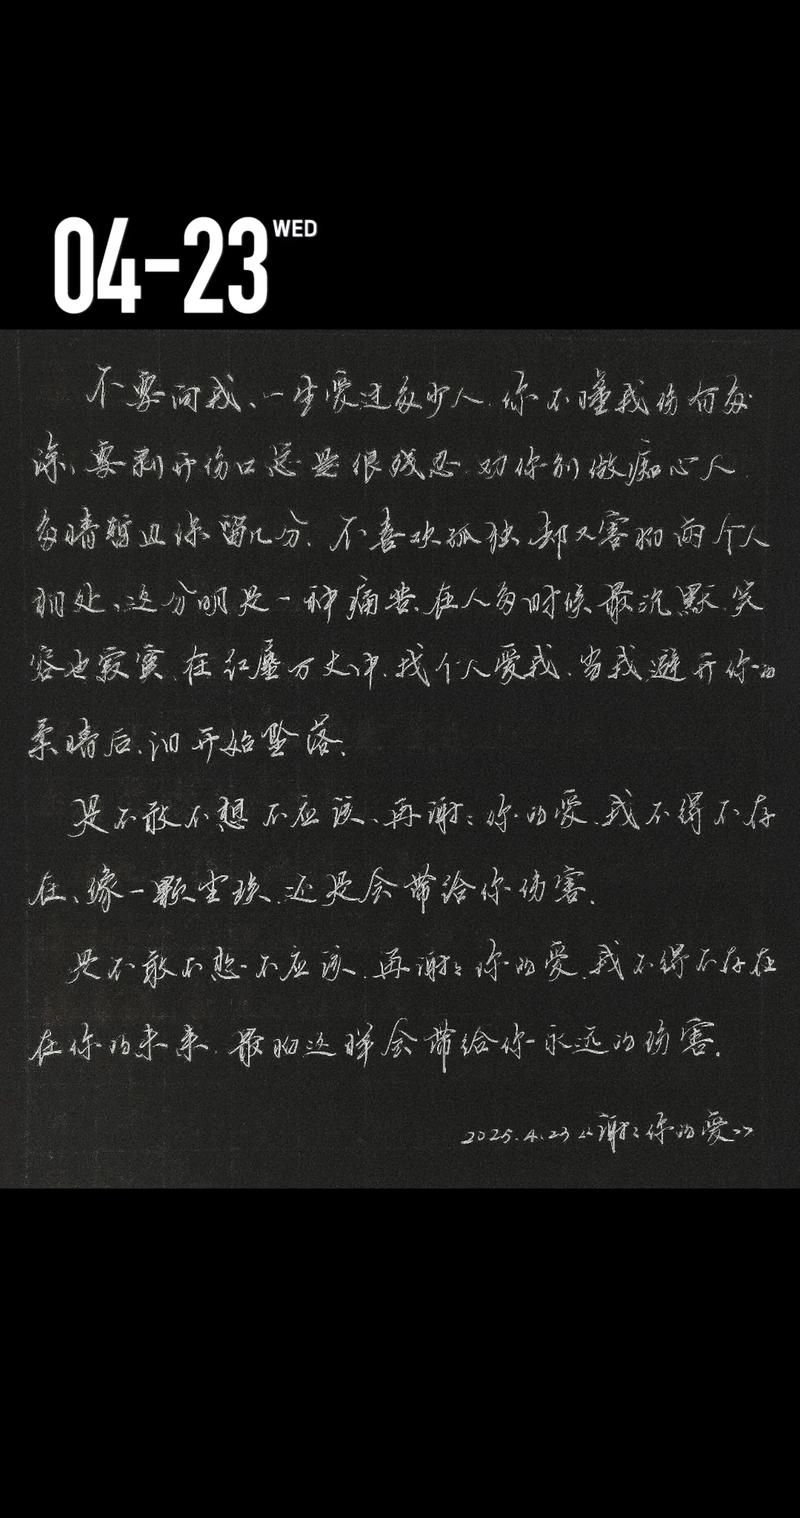 04-23 WED
不要问我、一生爱过多少人.你不懂我伤有多
深、要剥开伤口总是很残忍.劝你别做痴心人.
多情暂且保留几分.不喜欢孤独.却又害怕两个人
相处、这分明是一种痛苦.在人多时候最沉默.笑
容也寂寞.在红尘万丈中.找个人爱我.当我避开你的
柔情后.泪开始坠落.
是不敢不想不应该、再谢谢你的爱.我不得不存
在、像一颗尘埃.还是会带给你伤害.
是不敢不想不应该.再谢谢你的爱.我不得不存在
在你的未来.最怕这样会带给你永远的伤害.
2025.4.23 《谢谢你的爱》